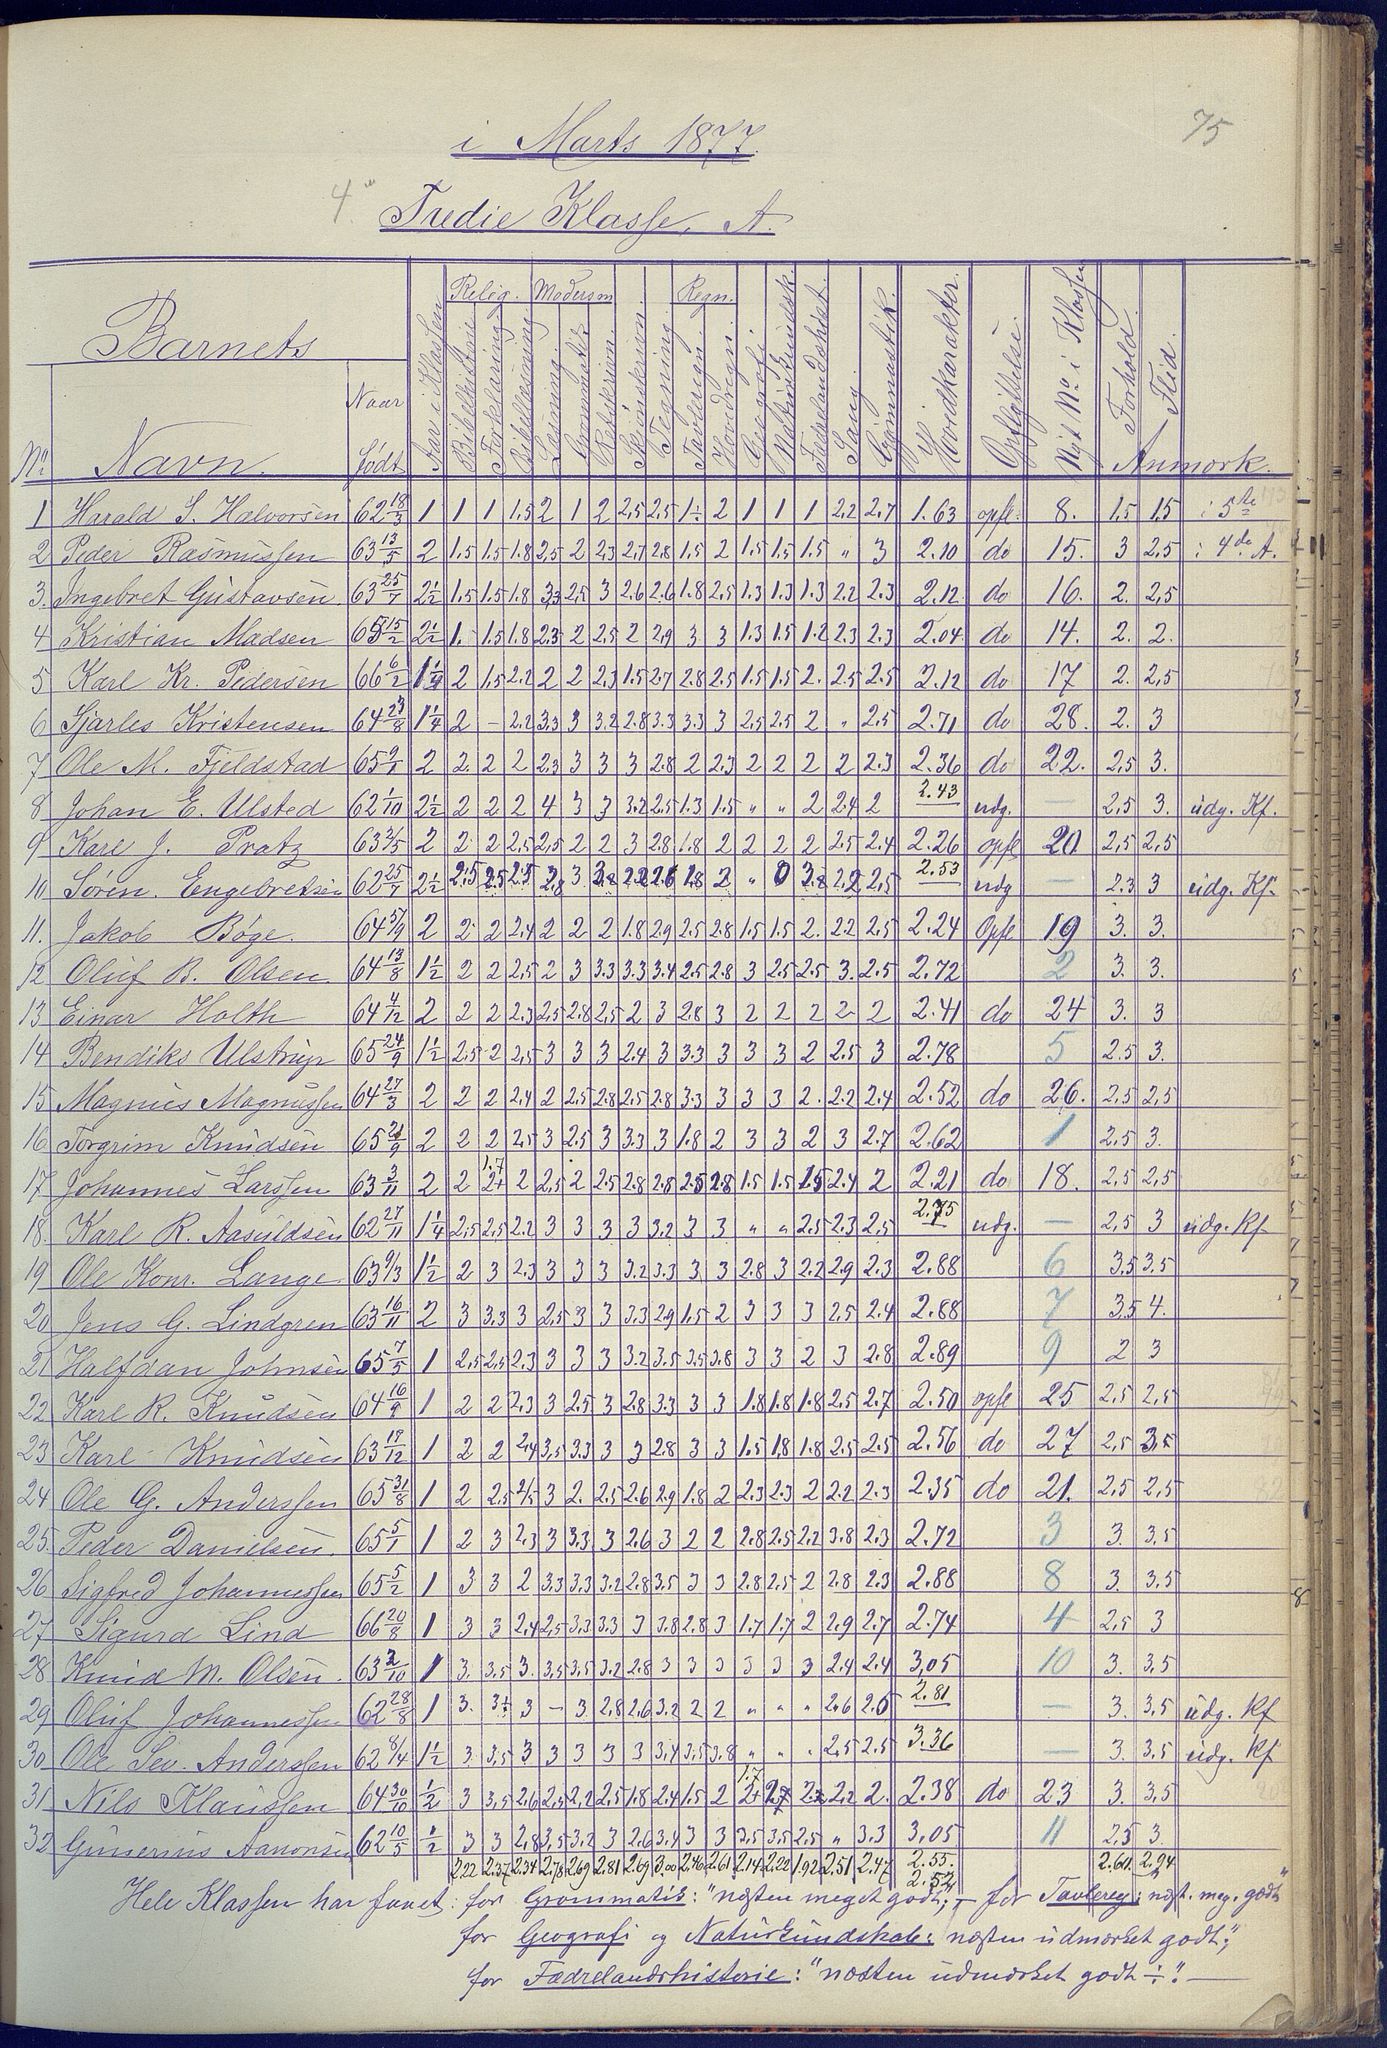 75
i Marts 1877.
4de
Tredie Klasse, A.
Barnets
No Navn. Naar Født Aar i Klassen Relig. Bibelhistorie Forklaring Bibellæsning Modersm. Læsning Grammatik Retskrivn. Skjønskrivn. Tegning Regn. Tavleregn. Hovedregn. Geografi Naturkundsk. Fædrelandshist. Sang Gymnastik. Hovedkarakter. Opflyttelse. Nyt No. i Klassen Forhold. Flid. Anmærk.
1 Harald S. Halvorsen 62 18/3 1 1 1 1.5 2 1 2 2,5 2,5 1÷ 2 1 1 1 2.2 2.7 1.63 opfl. 8. 1,5 1,5 i 5te
2 Peder Rasmussen 63 13/5 2 1.5 1.5 1.8 2,5 2 2.3 2.7 2.8 1.5 2 1.5 1.5 1.5 " 3 2.10 do 15. 3 2,5 i 4de A.
3. Ingebret Gustavsen. 63 25/7 2½ 1.5 1.5 1.8 3,3 2,5 3 2.6 2.6 1.8 2,5 1.3 1.3 1.3 2.2 2.3 2.12 do 16. 2. 2,5
4 Kristian Madsen 65 15/2 2½ 1. 1.5 1.8 2.3 2 2.5 2 2,9 3 3 1.3 1.5 1.2 2.3 2.3 2.04 do 14. 2. 2.
5 Karl Kr. Pedersen 66 6/2 1¼ 2 1.5 2.2 2 2 2.3 1.5 2.7 2.8 2.5 1.5 1.5 2. 2.5 2.5 2.12 do 17 2. 2,5
6 Sjarles Kristensen 64 23/8 1¼ 2 – 2.2 3.3 3 3.2 2.8 3.3 3.3 3 2.5 2.5 2 " 2.5 2.71 do 28. 2. 3
7 Ole M. Fjeldstad 65 9/1 2 2. 2 2 2,3 3 3 3 2.8 2 2.3 2 2 2 2 2.3 2.36 do 22. 2,5 3.
8 Johan E. Ulsted 62 1/10 2½ 2 2 2 4 3 3 3.2 2.5 1.3 1.5 " " 2 2.4 2 2.43 udg. — 2,5 3. udg. Kf.
9 Karl J. Pratz 63 3/5 2 2 2 2,5 2,5 2 2 3 2.8 1.8 2 2 2 2 2.5 2.4 2.26 opfl 20 2,5 2,5
10 Søren Engebretsen 62 25/7 2½ 2.5 2.5 2.5 2,8 3 2.8 2.2 2.6 1.8 2 " 0 2.8 2.2 2,5 2.53 udg — 2.3 3 udg. Kf.
11. Jakob Bøge. 64 5/9 2 2 2 2.4 2 2 2 1.8 2.9 2.5 2.8 1.5 1.5 2. 2.2 2.5 2.24 Opfl 19 3. 3.
12 Oluf B. Olsen. 64 13/8 1½ 2 2 2,5 2 3 3.3 3.3 3.4 2.5 2.8 3 2.5 2.5 3. 2.5 2.72 2 3. 3.
13 Einar Holth 64 4/12 2 2 2 2.3 2,5 2.8 2,5 2 3 2.8 3 2 2 2 2 2 2.41 do 24 3. 3
14 Bendiks Ulstrup 65 24/9 1½ 2.5 2 2,5 3 3 3 2.4 3 3.3 3 3 3 2 2.5 3 2.78 5 2.5 3.
15 Magnus Magnussen 64 27/3 2 2 2 2.4 2 2,5 2.8 2.5 2.8 3.3 3 3 3 2. 2.2 2.4 2.52 do 26. 2,5 2,5
16 Torgrim Knudsen 65 21/9 2 2 2 2,5 3 2.5 3 3.3 3 1.8 2 3 3 2 3 2.7 2.62 1 2.5 3.
17 Johannes Larssen 63 3/11 2 2 1.7 2+ 2 2,5 2 2.5 2.8 2.8 2.5 2.8 1.5 1.5 1.5 2.4 2 2.21 do 18. 2,5 2,5
18. Karl R. Aasuldsen 62 27/11 1¼ 2,5 2,5 2.2 3 3 3 3 3.2 3 3 " " 2.5 2.3 2.5 2.75 udg. — 2,5 3 udg. Kf
19 Ole Konr. Lange 63 9/3 1½ 2 3 2.3 3 3 3 3.2 3.3 3 3 2.8 3 2.2 2.9 2.3 2.88 6 3.5 3,5
20 Jens G. Lindgren 63 16/11 2 3 3,3 3 2,5 3 3 3.3 2.9 1.5 2 3 3 3 2,5 2.4 2.88 7 3.5 4.
21 Halfdan Johnsen 65 7/5 1 2,5 2,5 2.3 3 3 3 3.2 3.5 3.5 3.8 3 3 2 3 2.8 2.89 9 2 3
22 Karl R. Knudsen 64 16/9 1 2 2 2,3 3 2.5 3 2.8 3.3 3 3 1.8 1.8 1.8 2,5 2.7 2.50 opfl 25 2,5 2,5
23 Karl Knudsen 63 19/12 1 2 2 2,4 3,5 3.3 3 3 2.8 3 3 1.5 1.8 1.8 2.5 2.5 2.56 do 27 2,5 3,5
24 Ole G. Anderssen 65 31/8 1 2 2,5 2,5 3 2. 2.5 2.6 2.9 1.8 2 2.3 2.3 2 2.2 2.3 2.35 do 21. 2,5 2,5
25. Peder Danielsen. 65 5/1 1 2 3 2.3 3 3,3 3 2.6 3 2 2 2.8 2.5 2.2 3.8 2.3 2.72 3 3. 3,5
26 Sigfred Johannessen 65 5/2 1 3 3 2 3.3 3.3 3.2 2.8 3.5 3 3 2.8 2.5 2 2.8 2.3 2.88 8 3. 3,5
27 Sigurd Lind 66 20/8 1 3 3 2.4 2,5 3.3 3.3 3 3.8 2.8 3 1.7 1.7 2 2.9 2.7 2.74 4 2,5 3
28 Knud M. Olsen. 63 2/10 1 3. 3,5 3. 3,5 3,5 3.2 2.8 3 3 3 3 3 3 2.4 2.4 3,05 10 3. 3,5
29 Oluf Johannessen 62 28/8 1 3. 3+ 3 – 3 2,8 2,6 3.2 2 2 " " " 2,6 2.0 2.81 — 3. 3,5 udg. Kf
30 Ole Sev. Anderssen 62 8/4 1½ 3. 3,5 3 3 3 3 3 3,4 3,5 3.8 " " " 2,5 2.5 3.36 — 3. 3,5 udg. Kf
31 Nils Klaussen 64 30/10 ½ 3 3,5 2.6 2,5 2,2 2.5 1.8 2.4 1.5 2 1.7 2+ 2.7 2.2 2,2 2. 2.38 do 23 3. 3,5
32 Gunerius Aanonsen 62 10/5 ½ 3 3 2,8 3,5 3.2 3 2.6 3.4 3 3 3,5 3,5 2,5 " 3.3 3,05 11 2,5 3.
2.22 2.37 2.34 2.78 2.69 2.81 2.69 3.00 2.46 2.61 2.14 2.22 1.92 2.51 2.47 2.55. 2.60. 2.94
2.52
Hele Klassen har faaet: for Grammatik: "næsten meget godt"; – for Tavlereg: næst. meg. godt"
for Geografi og Naturkundskab: næsten udmærket godt";
for Fædrelandshistorie: "næsten udmærket godt ÷". —